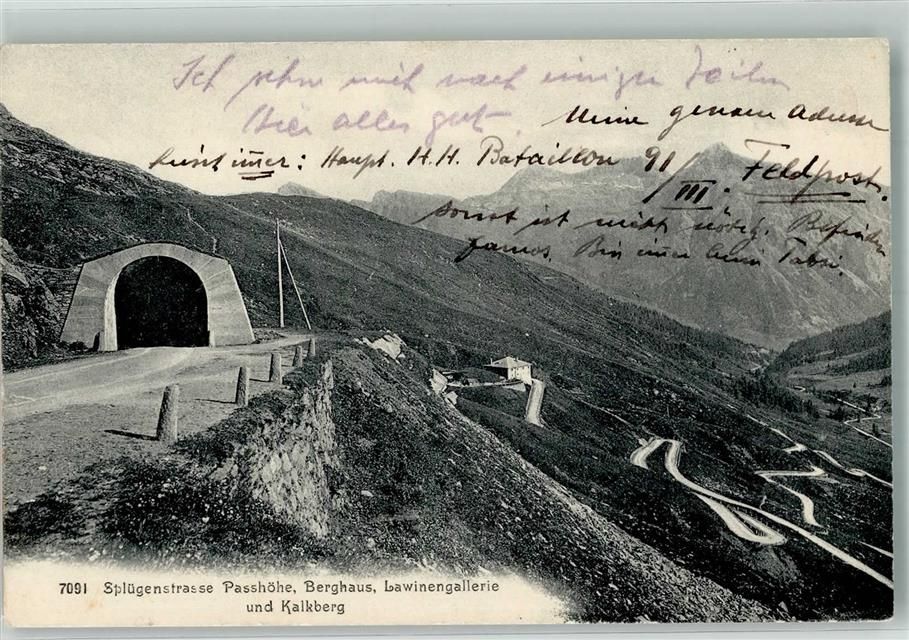 Ich sehn mich nach einigen Zeilen
Hier alles gut.
Meine genaue Adresse
heisst immer: Haupt. H.H. Bataillon 91/III. Feldpost.
sonst ist nichts nötig. Befinden
famos. Bin immer beim
7091 Splügenstrasse Passhöhe, Berghaus, Lawinengallerie
und Kalkberg